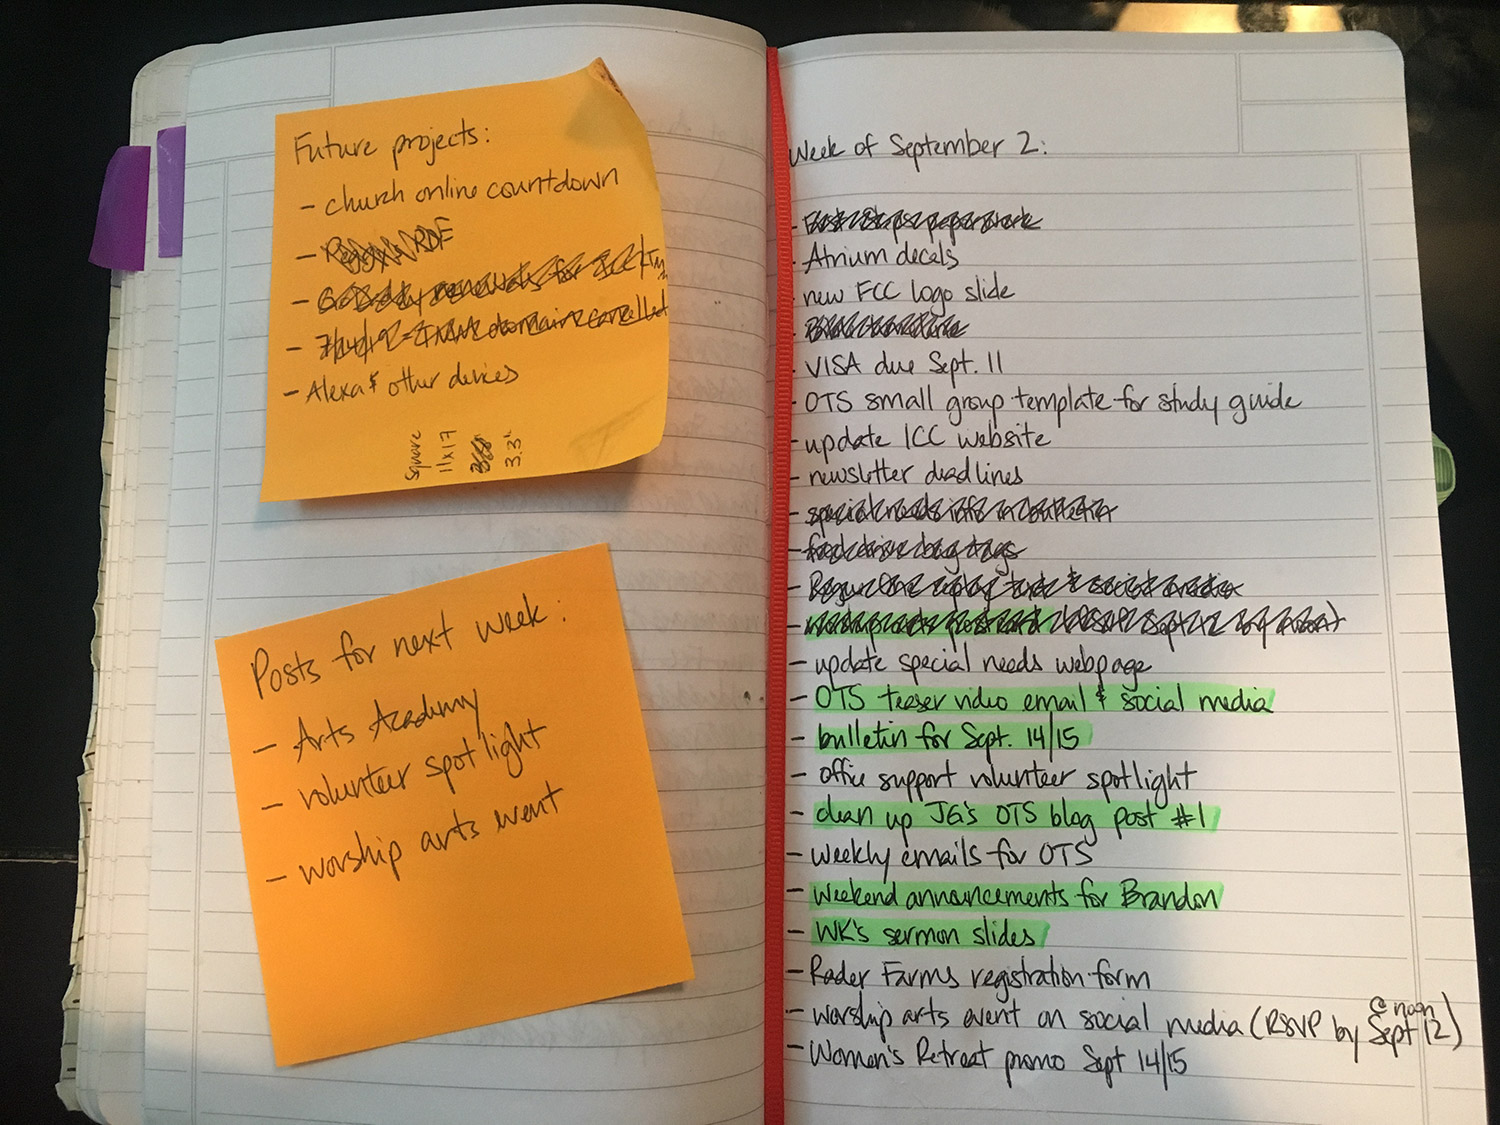 Future projects:
- church online countdown
- PDF
- renewals for ICC
- domain cancelled
- Alexa & other devices
Square
11x17
3.3
Posts for next week:
- Arts Academy
- volunteer spotlight
- worship arts event
Week of September 2:
- paperwork
- Atrium decals
- new FCC logo slide
- VISA due Sept. 11
- OTS small group template for study guide
- update ICC website
- newsletter deadlines
- special needs info in bulletin
- food drive bag tags
- & social media
- worship arts postcard (RSVP Sept 12 by noon)
- update special needs webpage
- OTS teaser video email & social media
- bulletin for Sept. 14/15
- office support volunteer spotlight
- clean up JG's OTS blog post #1
- weekly emails for OTS
- weekend announcements for Brandon
- WK's sermon slides
- Rader Farms registration form
- worship arts event on social media (RSVP by Sept 12 @ noon)
- Women's Retreat promo Sept 14/15